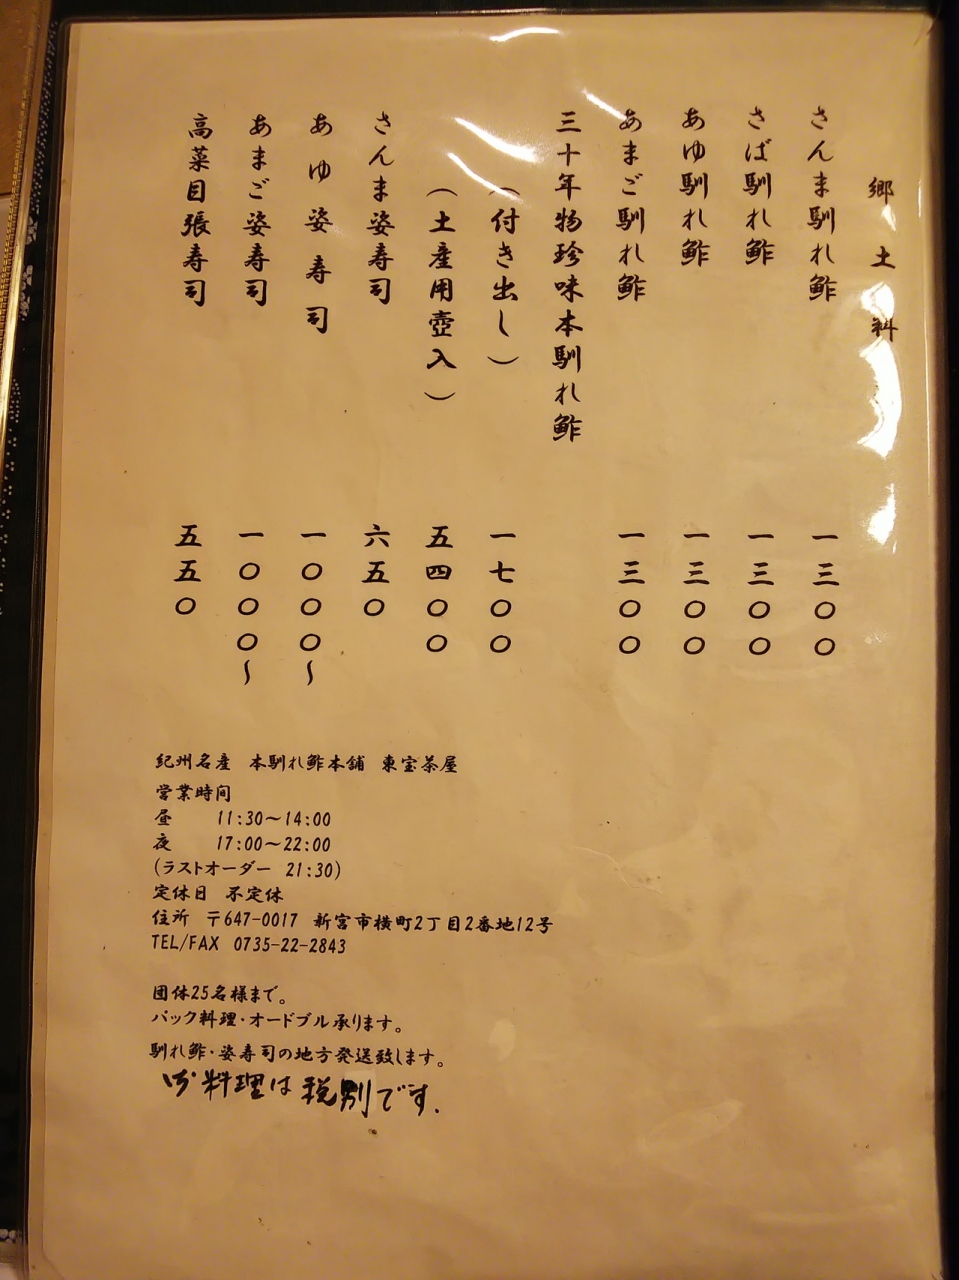 郷土料
さんま馴れ鮓 一三〇〇
さば馴れ鮓 一三〇〇
あゆ馴れ鮓 一三〇〇
あまご馴れ鮓 一三〇〇
三十年物珍味本馴れ鮓
（付き出し） 一七〇〇
（土産用壺入） 五四〇〇
さんま姿寿司 六五〇
あゆ姿寿司 一〇〇〇～
あまご姿寿司 一〇〇〇～
高菜目張寿司 五五〇
紀州名産 本馴れ鮓本舗 東宝茶屋
営業時間
昼 11:30～14:00
夜 17:00～22:00
(ラストオーダー 21:30)
定休日 不定休
住所 〒647-0017 新宮市横町2丁目2番地12号
TEL/FAX 0735-22-2843
団体25名様まで。
パック料理・オードブル承ります。
馴れ鮓・姿寿司の地方発送致します。
料理は税別です.